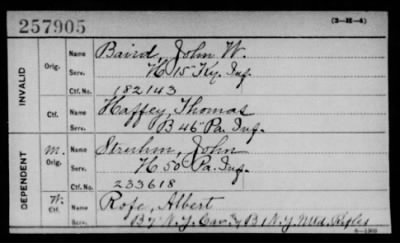 257905
(3-H-4)
INVALID
Orig.
Name Baird, John W.
Serv. H 15 Ky. Inf.
Ctf. No. 182143
Ctf.
Name Haffey, Thomas
Serv. B 46 Pa. Inf.
DEPENDENT
M. Orig.
Name John
Serv. H 50 Pa. Inf.
Ctf. No. 233618
W. Ctf.
Name Rofe, Albert
Serv. B 7 N.Y. Cav. & B 1 N.Y. Mtd. Rifles